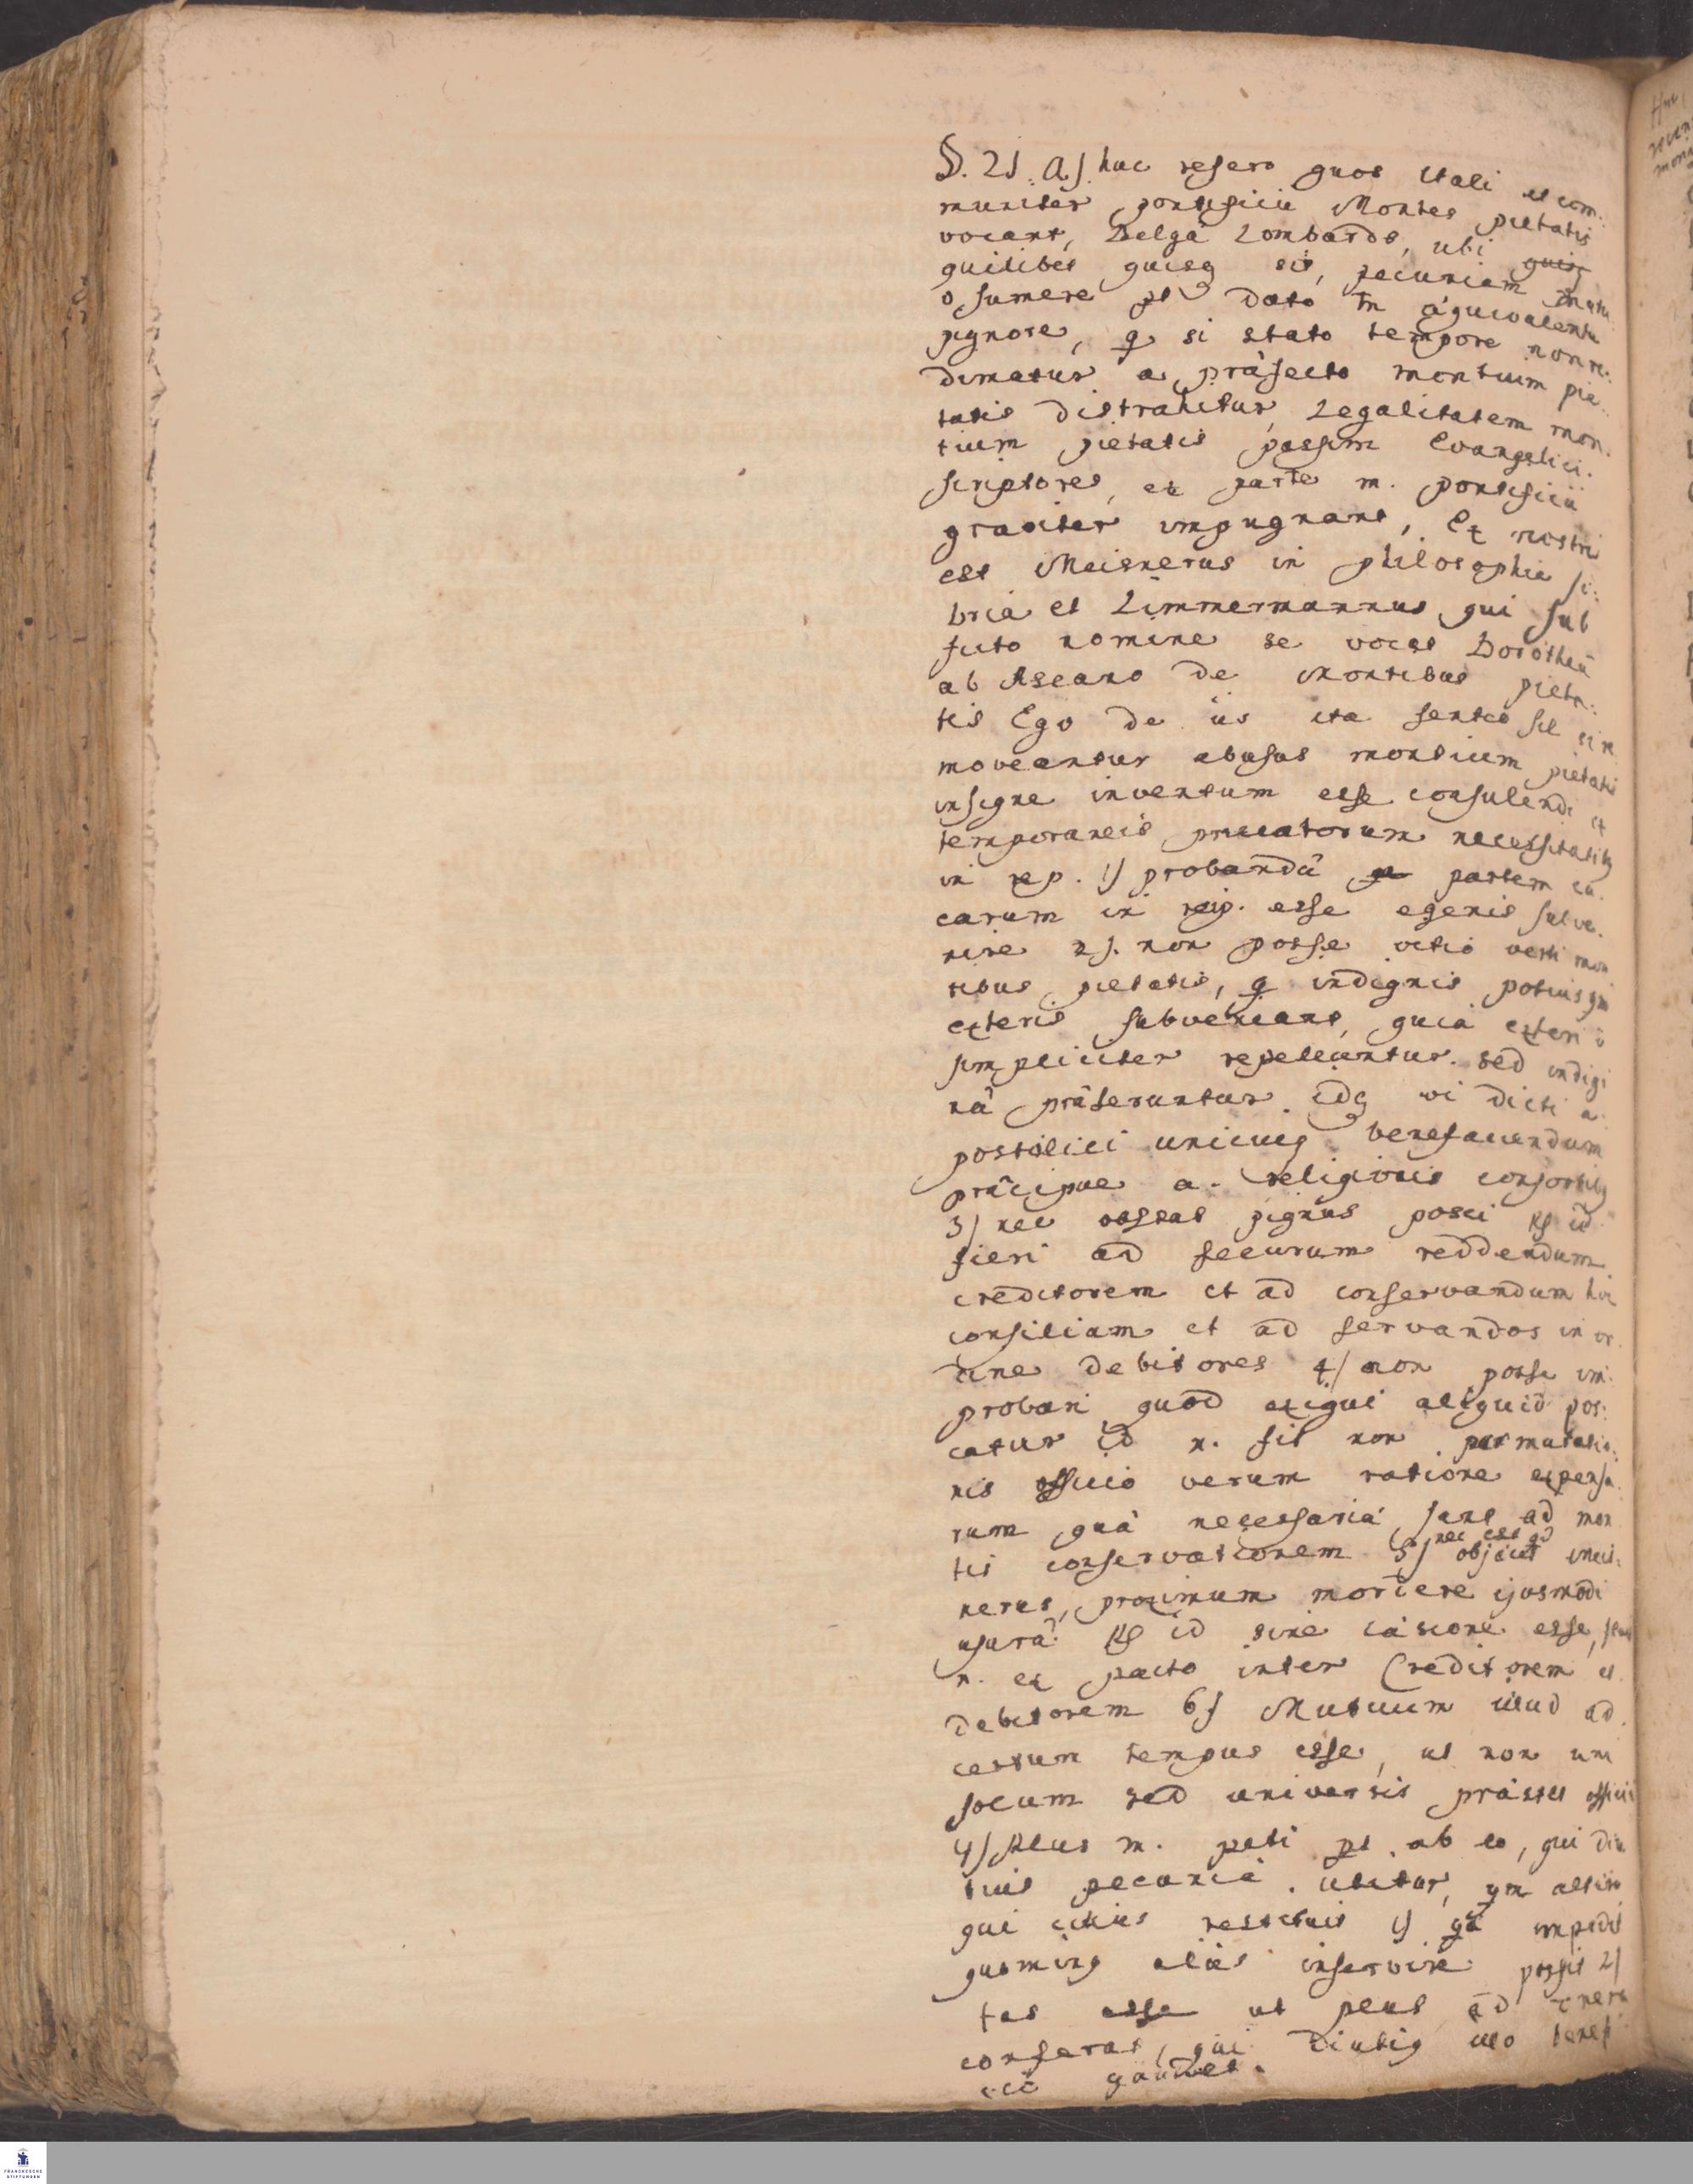 §. 21. a) huc refero quos Itali et com:
muniter pontificii Montes pietatis
vocant, Belgæ Lombards, ubi
quilibet quisq sit, pecuniam mutu
o sumere pt dato tn æquivalente
pignore, q si stato tempore non re:
dimatur a præfecto montium pie:
tatis distrahitur, Legalitatem mon:
tium pietatis passim Evangelici
scriptores, ex parte m. pontificii
graviter impugnant, Ex nostris
est Meisnerus in philosophia so:
bria et Zimmermannus qui sub
ficto nomine se vocat Dorotheū
ab Ascano de Montibus pieta:
tis Ego de iis ita sentio si re
moveantur abusus montium pietatis
insigne inventum esse consulendi et
temporaneis privatorum necessitatib
in rep. 1) probandā partem
earum in reip. esse egenis subve:
nire 2). non posse vitio verti mon
tibus pietatis, q indignis potius qm
exteris subveniant, quia exteri ō
simpliciter repelluntur. sed indige
næ præferuntur. idq vi dicti a
postolici unicuiq benefaciendum
præcipue a. religionis consortib
3) nec obstat pignus posci Rs id
fieri ad securum reddendum
creditorem et ad conservandum
consilium et ad servandos in or
dine debitores 4) non posse im:
probari quod exigui aliquid pos:
catur id n. fit non permutatio:
nis officio verum ratione expensa
rum quæ necessaria sunt ad mon
tis conservationem 5) nec est qd objicit Meis:
nerus, proximum mordere ejusmodi
usurā. Rs id sine læsione esse,
n. ex pacto inter Creditorem et
debitorem 6) Mutuum illud ad
certum tempus esse, ut non uni
socum sed universis præstet officii
7) Plus m. peti pt ab eo, qui diu
tius pecuniā utitur, qm altero
qui citius restituit 1) qa impedit
quominq aliis inservire possit 2)
fas esse ut plus ad onera
conferat, qui diutiq illo benefi
cio gaudet.
FRANCKESCHE
STIFTUNGEN